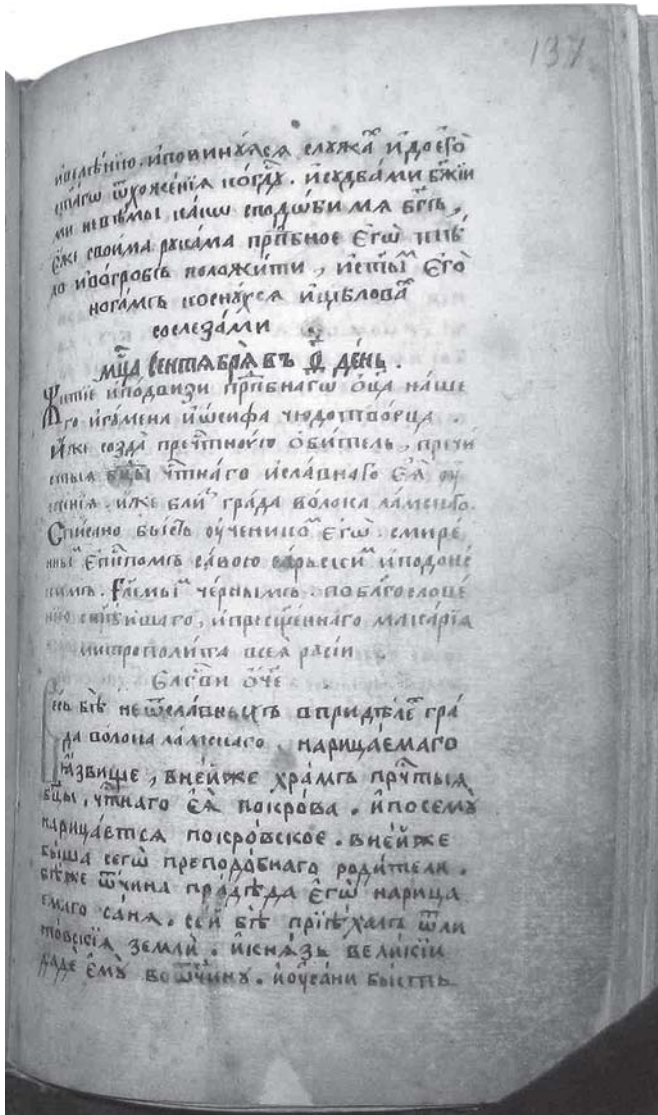 137
и повинꙋѧсѧ слꙋжа и до єго
ѿхоженїѧ когдꙋ. и сꙋдбами бж҃їи
ми невѣмы како сподоби мѧ бг҃ъ,
є́же своима рꙋкама прпⷣбное єгѡ тѣ
ло и во гробъ положити, єго
ногамъ коснꙋхсѧ и цѣлова
со слеза́ми
мцⷭ҇а сентѧбрѧ въ ѳ҃ де́нь.
Житїе и подвизи прпⷣбнагѡ ѻц҃а на́ше
го игꙋмена їѡ́сифа чюдотворца.
и́же созда пречⷭ҇тнꙋю ѻбитель, пречи
стыѧ бцⷣы чⷭ҇тнаго и славнаго єѧ̀ оу
спенїѧ. и́же бли града во́лока ламскаго.
Списано бысть оученико єгѡ̀. смире
нны єпⷭ҇помъ савою сарьски и подонс
кимъ. че́рнымъ. по благослове
нїю и пресщ҃е́ннаго макарїѧ
митрополи́та всеѧ̀ расїи
Бл҃гви ѻ҃че
Весь бѣ̀ не ѿ славныхъ в придѣле гра
да во́лока ла́мскаго, нарица́емаго
ꙗ҆звище, в не́йже храмъ прчⷭ҇тыѧ
бцⷣы, чⷭ҇тнаго єѧ̀ покро́ва. и по семꙋ̀
нарица́етсѧ покро́вское. в не́йже
бы́ша сегѡ̀ преподо́бнаго роди́тели.
бѣ́же ѿчина пра́дѣда єгѡ̀ нарица
емаго са́нѧ. се́й бѣ̀ прїѣ́халъ ѿ ли
то́вскїѧ землѝ. и кнѧ́зь вели́кїи
дадѐ ємꙋ̀ во ѿчинꙋ. и оу са́ни бы́сть